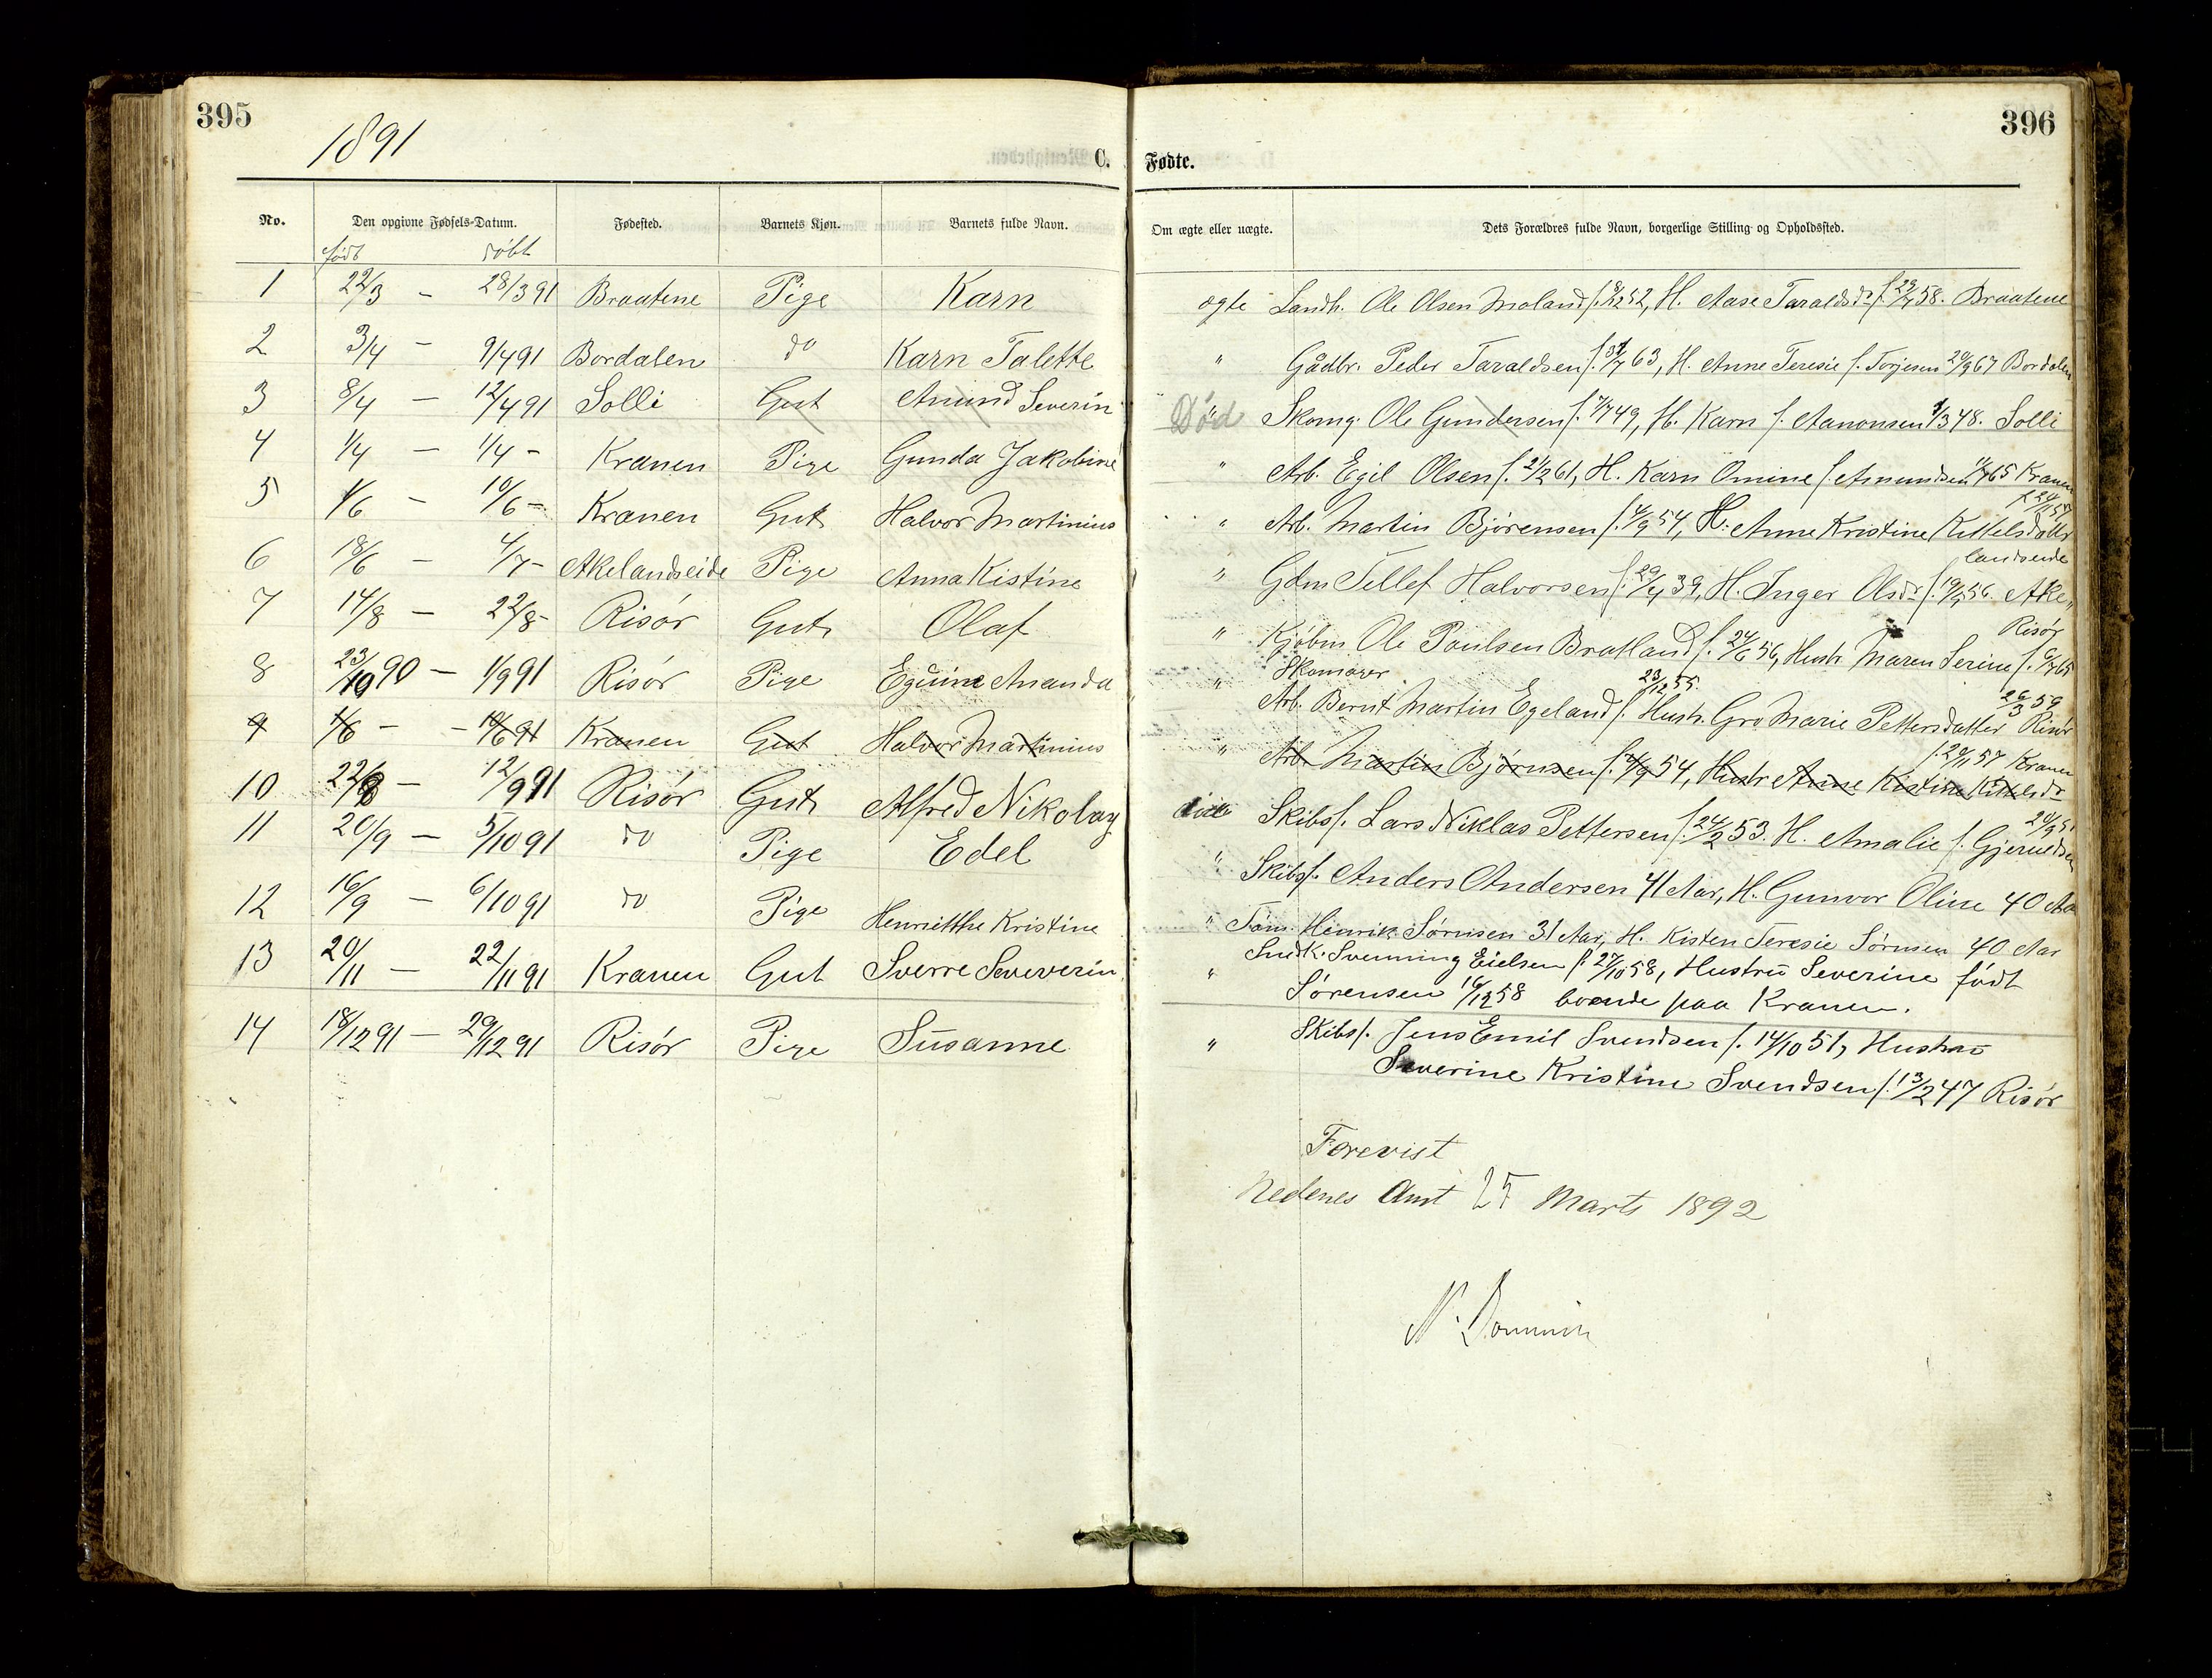 395
396
1891
C. Fødte.
No. Den opgivne Fødsels-Datum. Fødested. Barnets Kjøn. Barnets fulde Navn. Om ægte eller uægte. Dets Forældres fulde Navn, borgerlige Stilling og Opholdssted.
født døbt
1 22/3 - 28/3 91 Braatene Pige Karn ægte Landh. Ole Olsen Moland f. 52, H. Aase Taraldsdr f. 58. Braatene
2 3/4 - 9/4 91 Bordalen do Karn Talette " Gådbr. Peder Taraldsen f. 63, H. Anne Teresie f. Torjesen 20/9 67 Bordalen
3 8/4 - 12/4 91 Solli Gut Amund Severin Død " Skomg. Ole Gundersen f. 7/7 49, H. Karn f. Aanonsen 48. Solli
4 1/4 - 1/4 - Kranen Pige Gunda Jakobine " Arb. Egil Olsen f. 21/2 61, H. Karn Omine f. Amundsen 65 Kranen
5 1/6 - 10/6 - Kranen Gut Halvor Martinius " Arb. Martin Bjørensen f. 4/9 54, H. Anne Kristine Kittelsdatter f. 57
6 18/6 - 4/7 - Akelandseide Pige Anna Kistine " Gdm Tellef Halvorsen f. 29/4 39, H. Inger Olsdr f. 56. Ake„
landseide
7 14/8 - 22/8 - Risør Gut Olaf " Kjøbm. Ole Paulsen Bratland f. 24/6 56, Hustr. Maren Serine f. 65
Risør
8 23/10 90 - 1/9 91 Risør Pige Eguine Amanda " Skomager
Arb. Bernt Martin Egeland f. 23/12 55. Hustr. Gro Marie Pettersdatter 26/3 59 Risør
9 1/6 - - 10/6 91 Kranen Gut Halvor Martinius " Arb. Martin Bjørnsen f. 4/9 54, Hustr Anne Kistine Kittelsdr f. 57 Kranen
10 22/8 - 12/9 91 Risør Gut Alfred Nikolay Skibsf. Lars Niklas Pettersen f. 24/2 53. H. Amalie f. Gjeruldsen 24/9 51
11 20/9 - 5/10 91 do Pige Edel " Skibsf. Anders Andersen 41 Aar, H. Gunvor Oline 40 Aar
12 16/9 - 6/10 91 do Pige Henrietthe Kristine " Tøm. Hinrik Sørnsen 31 Aar, H. Kisten Teresie Sørnsen 40 Aar
13 20/11 - 22/11 91 Kranen Gut Sverre Seveverin " Snedk. Svenning Eielsen f. 27/10 58, Hustru Severine født
Sørensen 16/12 58 boende paa Kranen.
14 18/12 91 - 29/12 91 Risør Pige Susanne " Skibsf. Jens Emil Svendsen f. 14/10 51, Hustru
Severine Kristine Svendsen f. 13/2 47 Risør
Forevist
Nedenes Amt 25 Marts 1892